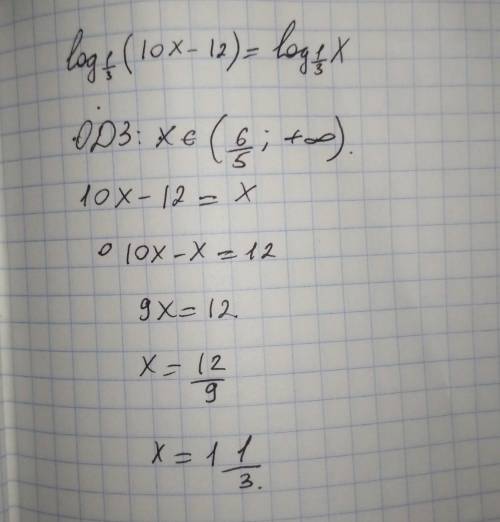 log_{1/3}(10x - 12) = log_{1/3} x
ОДЗ: x ∈ (6/5; +∞).
10x - 12 = x
10x - x = 12
9x = 12.
x = 12/9
x = 1 1/3.